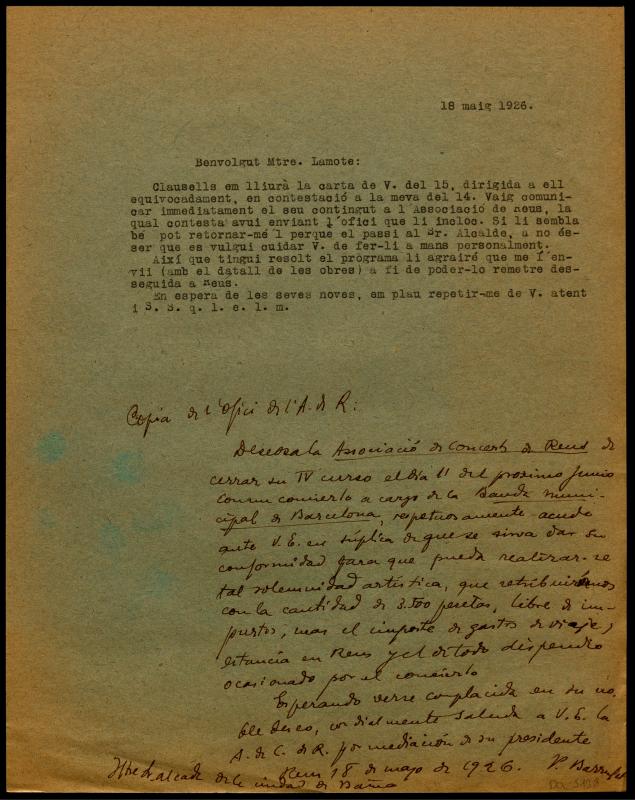 18 maig 1926.
Benvolgut Mtre. Lamote:
Clausells em lliurà la carta de V. del 15, dirigida a ell
equivocadament, en contestació a la meva del 14. Vaig comuni-
car immediatament el seu contingut a l'Associació de Reus, la
qual contesta avui enviant l'ofici que li incloc. Si li sembla
bé pot retornar-me'l perque el passi al Sr. Alcalde, a no és-
ser que es vulgui cuidar V. de fer-li a mans personalment.
Així que tingui resolt el programa li agrairé que me l'en-
vii (amb el datall de les obres) a fi de poder-lo remetre des-
seguida a Reus.
En espera de les seves noves, em plau repetir-me de V. atent
i S. S. q. l. e. l. m.
Copia de l'Ofici de l'A. de R:
Deseosa la Associació de Concerts de Reus de
cerrar su IV curso el dia 11 del proximo Junio
con un concierto a cargo de la Banda Muni-
cipal de Barcelona, respetuosamente acude
ante V.E. en súplica de que se sirva dar su
conformidad para que pueda realizar-se
tal solemnidad artística, que retribuiremos
con la cantidad de 3.500 pesetas, libre de im-
puestos, mas el importe de gastos de viaje,
estancia en Reus y el de todo dispendio
ocasionado por el concierto
Esperando verse complacida en su no-
ble deseo, cordialmente saluda a V.E. la
A. de C. de R. por mediación de su presidente
Reus 18 de mayo de 1926. P.
Iltre. Sr. alcalde de la ciudad de Barna